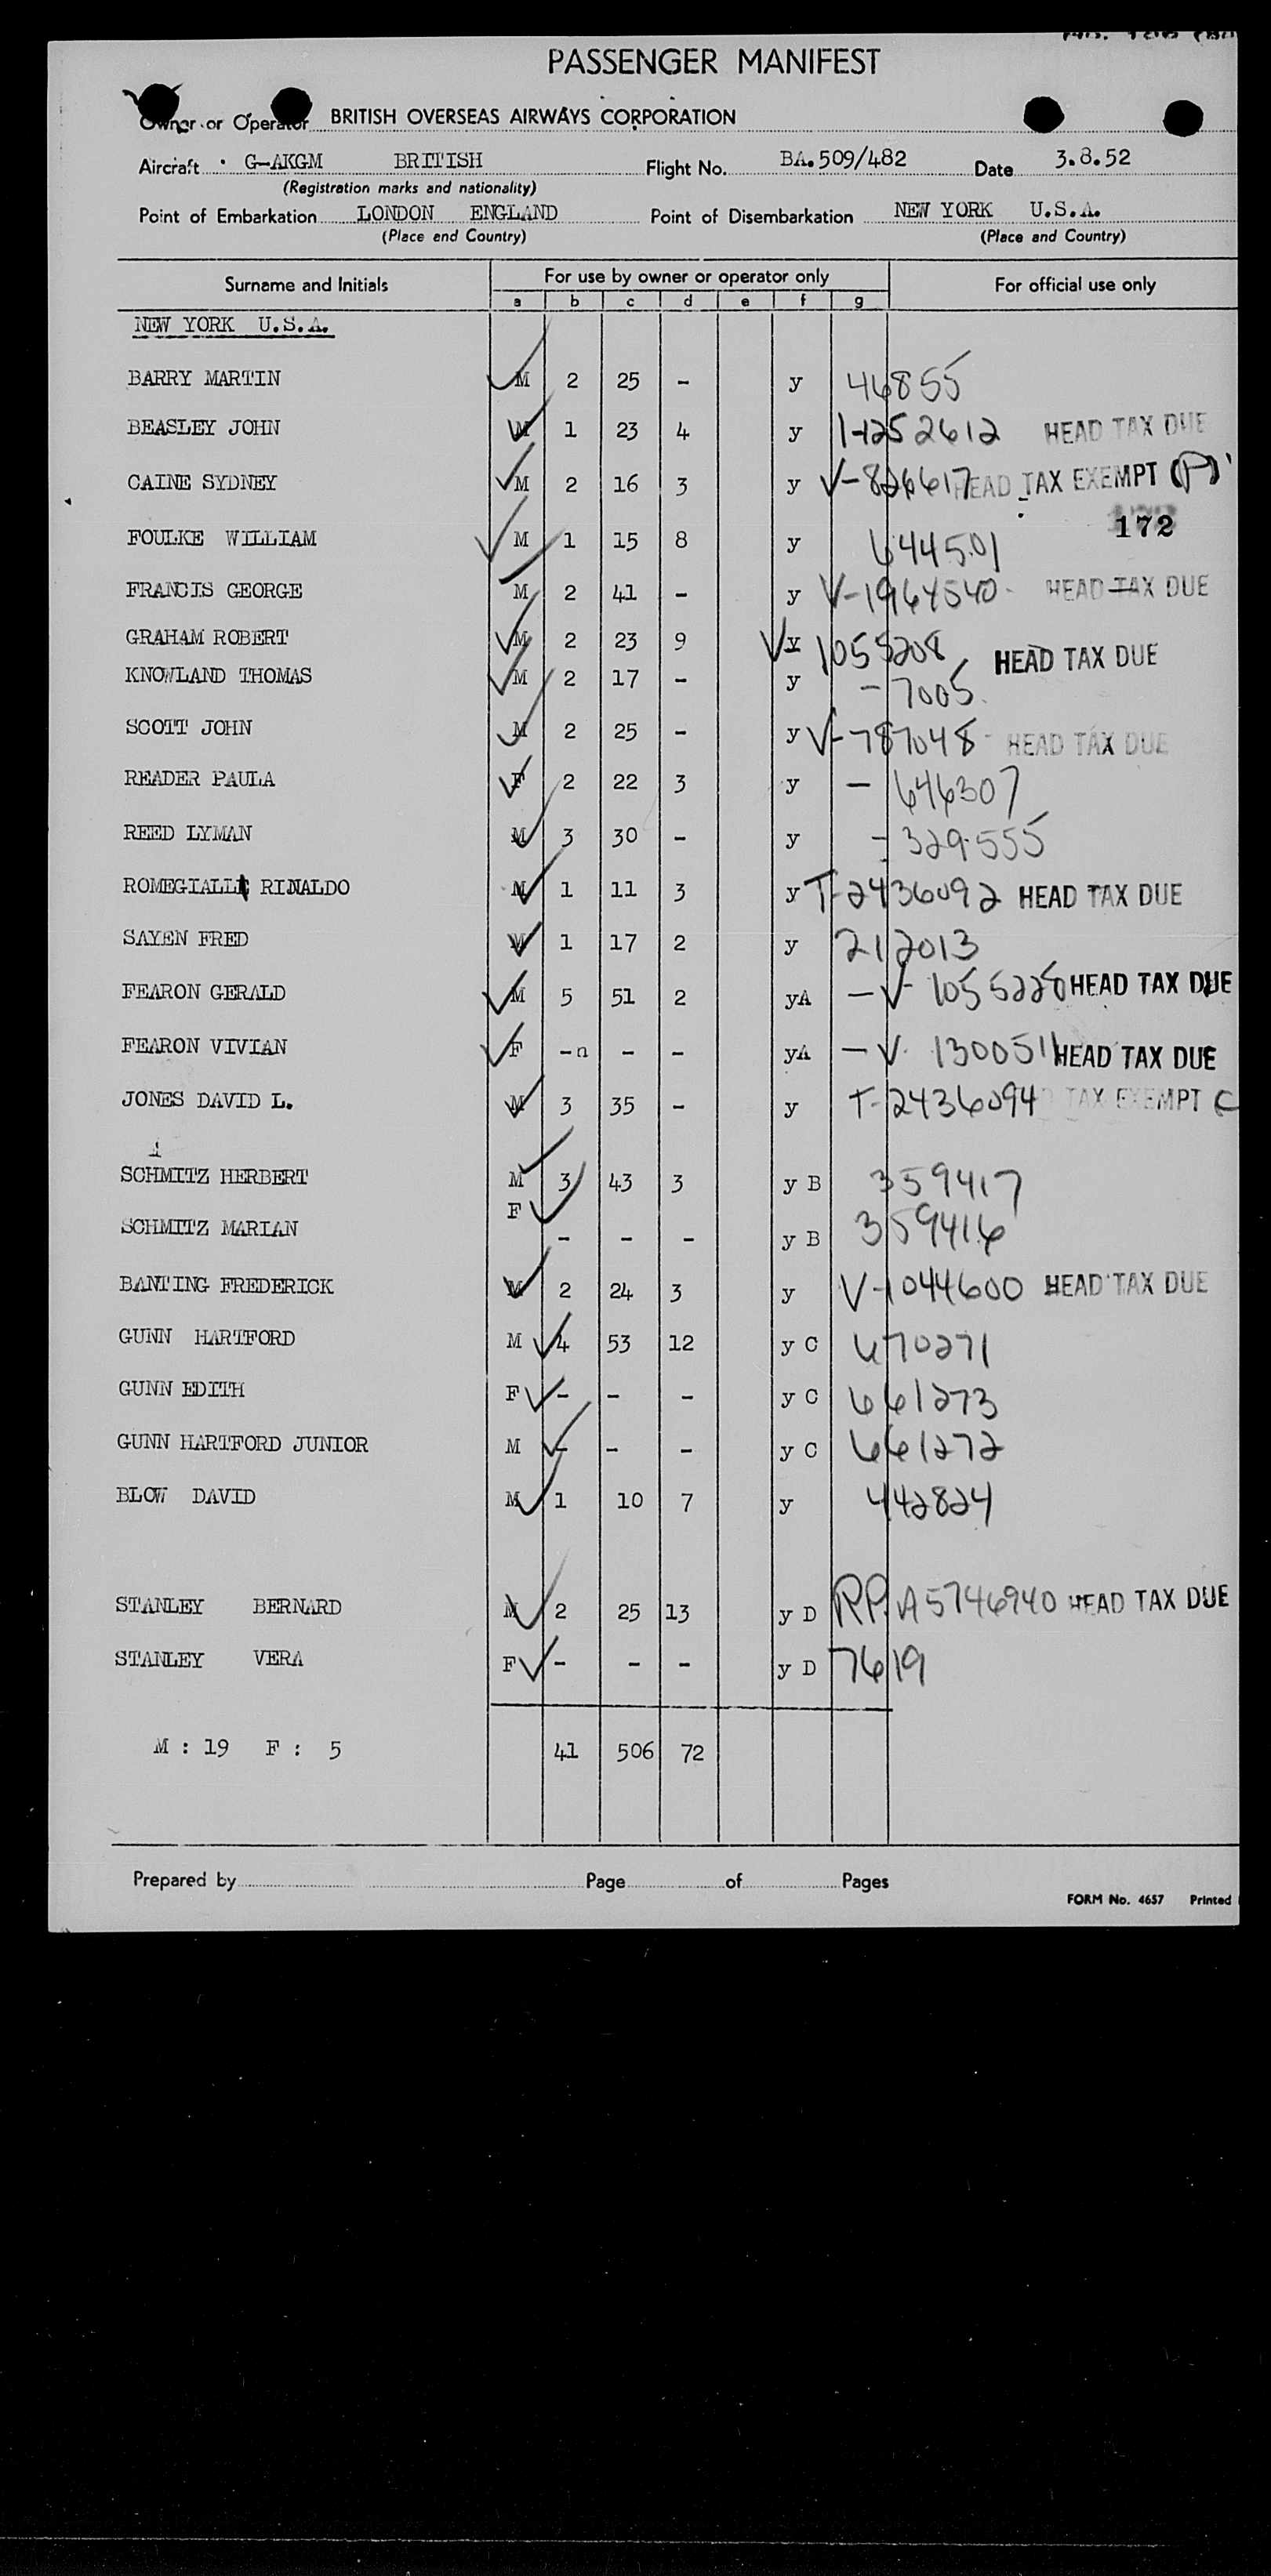 PASSENGER MANIFEST
Owner or Operator BRITISH OVERSEAS AIRWAYS CORPORATION
Aircraft G-AKGM BRITISH Flight No. BA.509/482 Date 3.8.52
(Registration marks and nationality)
Point of Embarkation LONDON ENGLAND Point of Disembarkation NEW YORK U.S.A.
(Place and Country) (Place and Country)
Surname and Initials For use by owner or operator only For official use only
a b c d e f g
NEW YORK U.S.A.
BARRY MARTIN M 2 25 - y 46855
BEASLEY JOHN M 1 23 4 y 1-1252612 HEAD TAX DUE
CAINE SYDNEY M 2 16 3 y V-826617 HEAD TAX EXEMPT (P)
172
FOULKE WILLIAM M 1 15 8 y 644501
FRANCIS GEORGE M 2 41 - y V-1964540- HEAD TAX DUE
GRAHAM ROBERT M 2 23 9 y V 1055208 HEAD TAX DUE
KNOWLAND THOMAS M 2 17 - y - 7005
SCOTT JOHN M 2 25 - y V-787048- HEAD TAX DUE
READER PAULA F 2 22 3 y - 646307
REED LYMAN M 3 30 - y - 329555
ROMEGIALLI RINALDO M 1 11 3 y T-2436092 HEAD TAX DUE
SAYEN FRED M 1 17 2 y 212013
FEARON GERALD M 5 51 2 yA -V- 1055228 HEAD TAX DUE
FEARON VIVIAN F -n - - yA -V- 1300511 HEAD TAX DUE
JONES DAVID L. M 3 35 - y T-2436094 TAX EXEMPT C
SCHMITZ HERBERT M 3 43 3 y B 359417
SCHMITZ MARIAN F - - - y B 359416
BANTING FREDERICK M 2 24 3 y V-1044600 HEAD TAX DUE
GUNN HARTFORD M 4 53 12 y C 670271
GUNN EDITH F - - - y C 661273
GUNN HARTFORD JUNIOR M - - - y C 661272
BLOW DAVID M 1 10 7 y 442824
STANLEY BERNARD M 2 25 13 y D RP. A5746940 HEAD TAX DUE
STANLEY VERA F - - - y D 7619
M : 19 F : 5 41 506 72
Prepared by Page of Pages
FORM No. 4657 Printed